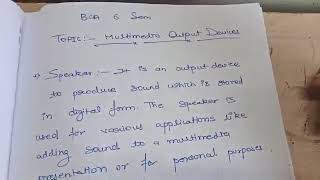 BCA 6 Sem
TOPIC:- Multimedia Output Devices
1) Speaker:- It is an output device
to produce sound which is stored
in digital form. The speaker is
used for various applications like
adding sound to a multimedia
presentation or for personal purposes.